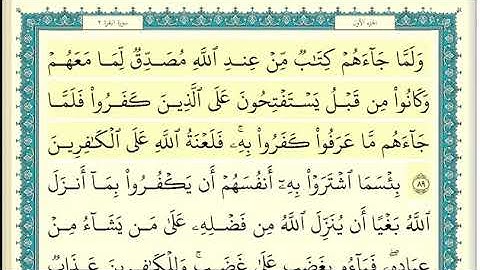 الجزء الأول
سورة البقرة ٢
وَلَمَّا جَآءَهُمْ كِتَٰبٌ مِّنْ عِندِ ٱللَّهِ مُصَدِّقٌ لِّمَا مَعَهُمْ
وَكَانُوا۟ مِن قَبْلُ يَسْتَفْتِحُونَ عَلَى ٱلَّذِينَ كَفَرُوا۟ فَلَمَّا
جَآءَهُم مَّا عَرَفُوا۟ كَفَرُوا۟ بِهِۦۚ فَلَعْنَةُ ٱللَّهِ عَلَى ٱلْكَٰفِرِينَ
٨٩ بِئْسَمَا ٱشْتَرَوْا۟ بِهِۦٓ أَنفُسَهُمْ أَن يَكْفُرُوا۟ بِمَآ أَنزَلَ
ٱللَّهُ بَغْيًا أَن يُنَزِّلَ ٱللَّهُ مِن فَضْلِهِۦ عَلَىٰ مَن يَشَآءُ مِنْ
عِبَادِهِۦۖ فَبَآءُو بِغَضَبٍ عَلَىٰ غَضَبٍۚ وَلِلْكَٰفِرِينَ عَذَابٌ